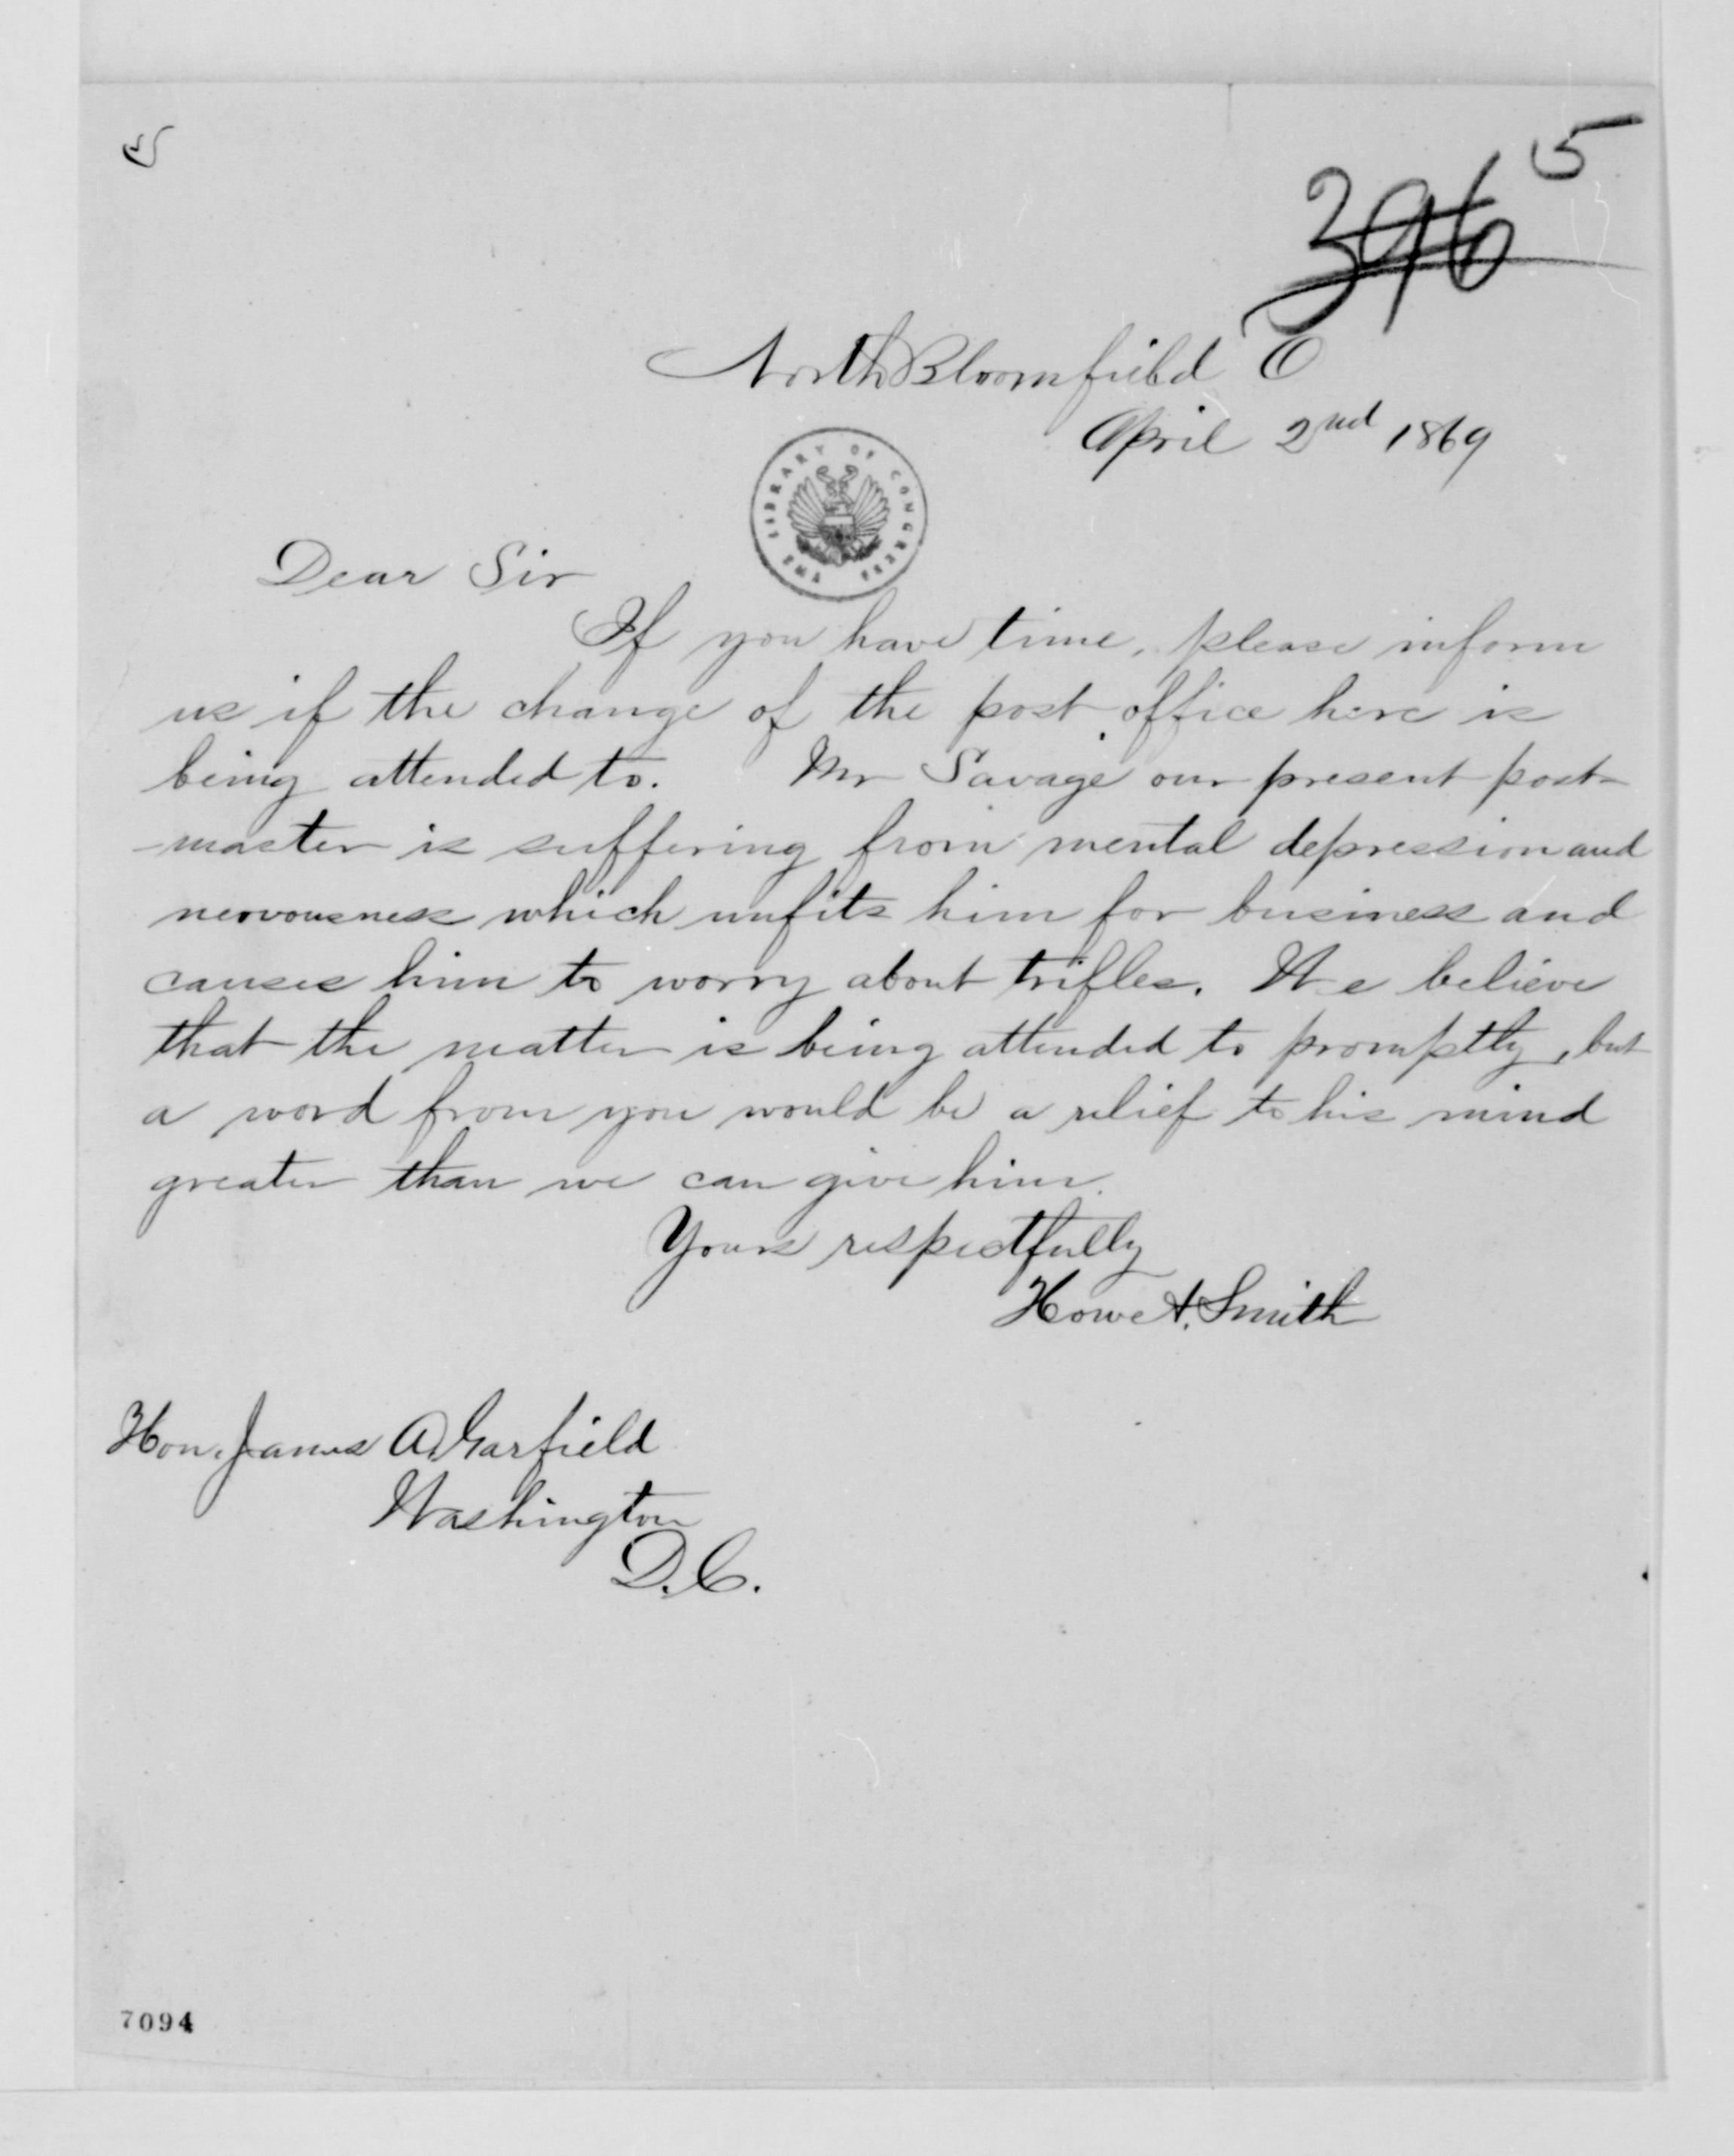 5
396
North Bloomfield O
April 2nd 1869
THE LIBRARY OF CONGRESS
Dear Sir
If you have time, please inform
us if the change of the post office here is
being attended to. Mr Savage our present post-
-master is suffering from mental depression and
nervousness which unfits him for business and
causes him to worry about trifles. We believe
that the matter is being attended to promptly, but
a word from you would be a relief to his mind
greater than we can give him.
Yours respectfully
Howe A. Smith
Hon. James A. Garfield
Washington
D.C.
7094